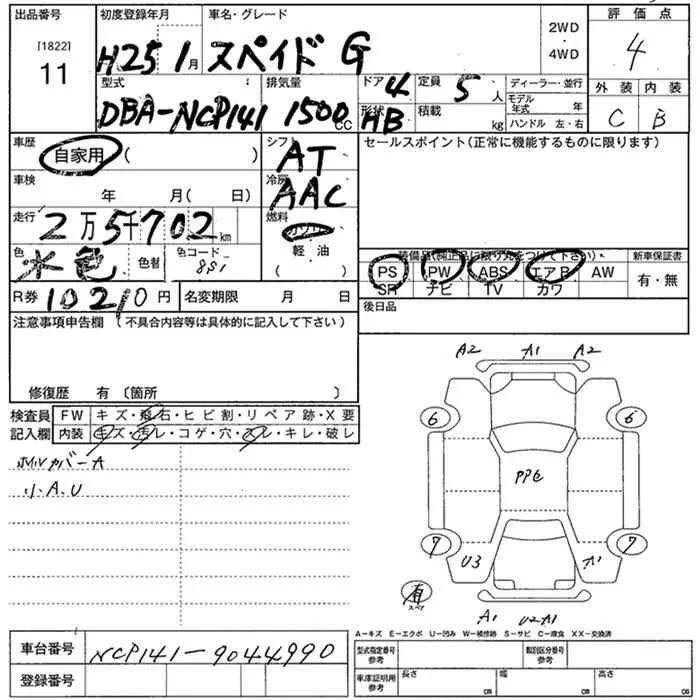 出品番号
[1822]
11
初度登録年月
H25 1月
車名・グレード
スペイド G
2WD
・
4WD
評価点
4
型式
DBA-NCP141
排気量
1500 CC
ドア 4
形状 HB
定員 5 人
積載 kg
ディーラー・並行
モデル年式 年
ハンドル 左・右
外装 内装
C B
車歴
自家用 ( )
車検 年 月( 日)
走行 2万5千702 km
色 水色 色替 色コード 8S1
シフト
AT
冷房
AAC
燃料
ガソリン
軽油
R券 10210円
名変期限 月 日
セールスポイント(正常に機能するものに限ります)
装備品(純正品に限り丸をつけて下さい)
新車保証書
PS PW ABS エアB AW
SR ナビ TV カワ
有・無
後日品
注意事項申告欄 (不具合内容等は具体的に記入して下さい)
修復歴 有 〔箇所 〕
検査員記入欄
FW キズ・飛石・ヒビ割・リペア跡・X要
内装 キズ・汚レ・コゲ・穴・スレ・キレ・破レ
カバーA
小A.U
A2 A1 A2
6 6
PPC
7 7
U3 A1
有
スペア
A1 U2-A1
A-キズ E-エクボ U-凹み W-補修跡 S-サビ C-腐食 XX-交換済
車台番号 NCP141-9044990
登録番号
型式指定番号 参考
類別区分番号 参考
車庫証明用 参考
長さ cm
幅 cm
高さ cm